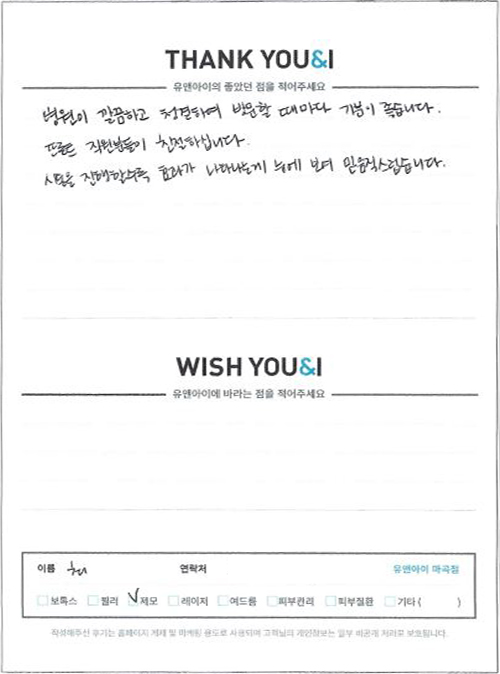 THANK YOU&I
유앤아이의 좋았던 점을 적어주세요
병원이 깔끔하고 청결하여 방문할 때마다 기분이 좋습니다.
모든 직원분들이 친절하십니다.
시술을 진행할수록 효과가 나타나는게 눈에 보여 믿음직스럽습니다.
WISH YOU&I
유앤아이에 바라는 점을 적어주세요
이름 연락처 유앤아이 마곡점
보톡스 필러 제모 레이저 여드름 피부관리 피부질환 기타 ( )
작성해주신 후기는 홈페이지 게재 및 마케팅 용도로 사용되며 고객님의 개인정보는 일부 비공개 처리로 보호됩니다.